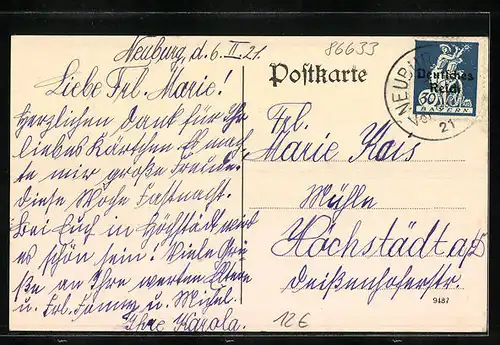 Neuburg, d. 6. II. 21.
Liebe Frl. Marie!
Herzlichen Dank für Ihr
liebes Kärtchen. Es mach-
te mir große Freude.
diese Woche Fastnacht.
Bei Euch in Höchstädt wird
es schön sein! Viele Grü-
ße an Ihre werten Eltern
u. Frl. Fanny u. Michel.
Ihre Karola.
86633
Postkarte
Deutsches
Reich
30
BAYERN
NEUBURG
21
Frl.
Marie Kais
Mühle
Höchstädt a/D
Deißenhoferstr.
9487
12€